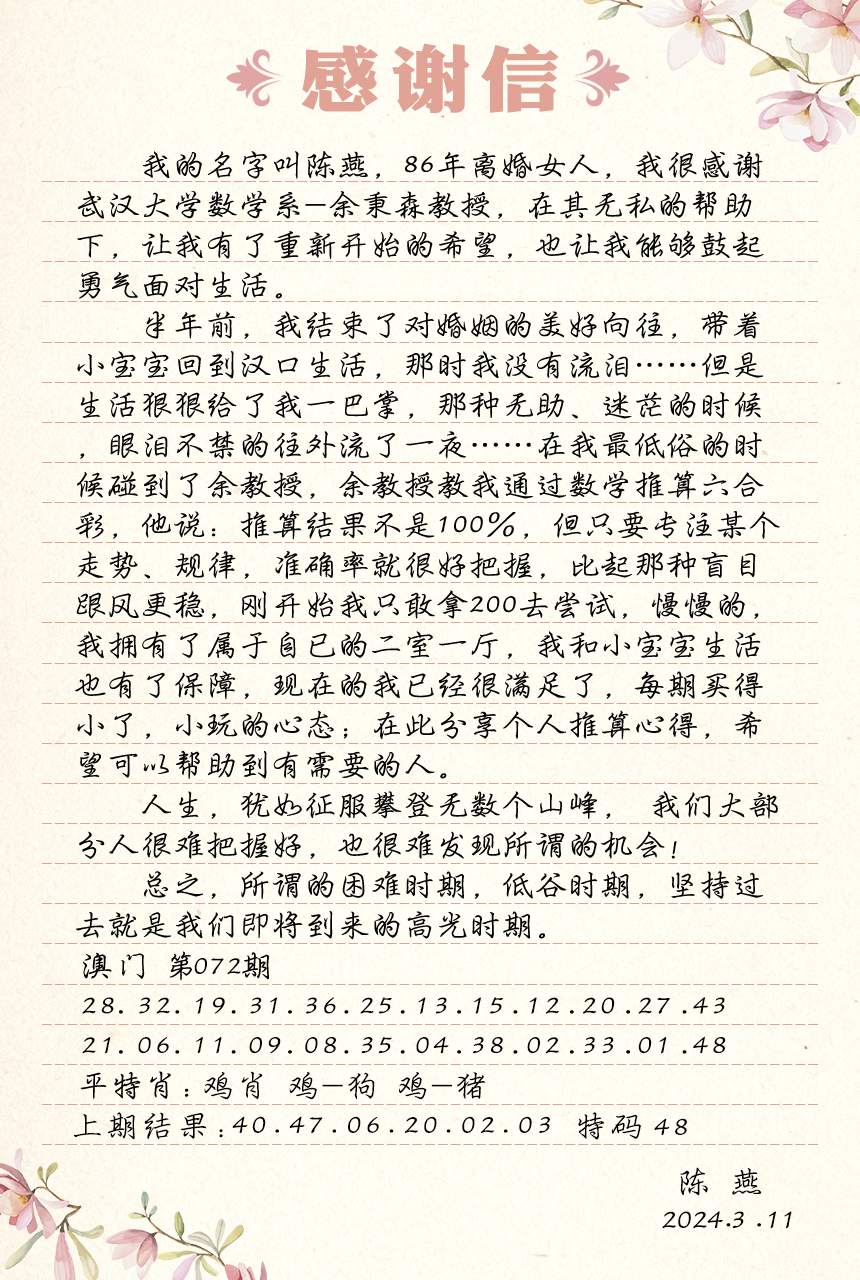 感谢信
我的名字叫陈燕，86年离婚女人，我很感谢
武汉大学数学系—余秉森教授，在其无私的帮助
下，让我有了重新开始的希望，也让我能够鼓起
勇气面对生活。
半年前，我结束了对婚姻的美好向往，带着
小宝宝回到汉口生活，那时我没有流泪……但是
生活狠狠给了我一巴掌，那种无助、迷茫的时候
，眼泪不禁的往外流了一夜……在我最低俗的时
候碰到了余教授，余教授教我通过数学推算六合
彩，他说：推算结果不是100%，但只要专注某个
走势、规律，准确率就很好把握，比起那种盲目
跟风更稳，刚开始我只敢拿200去尝试，慢慢的，
我拥有了属于自已的二室一厅，我和小宝宝生活
也有了保障，现在的我已经很满足了，每期买得
小了，小玩的心态；在此分享个人推算心得，希
望可以帮助到有需要的人。
人生，犹如征服攀登无数个山峰， 我们大部
分人很难把握好，也很难发现所谓的机会！
总之，所谓的困难时期，低谷时期，坚持过
去就是我们即将到来的高光时期。
澳门 第072期
28.32.19.31.36.25.13.15.12.20.27.43
21.06.11.09.08.35.04.38.02.33.01.48
平特肖：鸡肖 鸡—狗 鸡—猪
上期结果：40.47.06.20.02.03 特码 48
陈 燕
2024.3.11